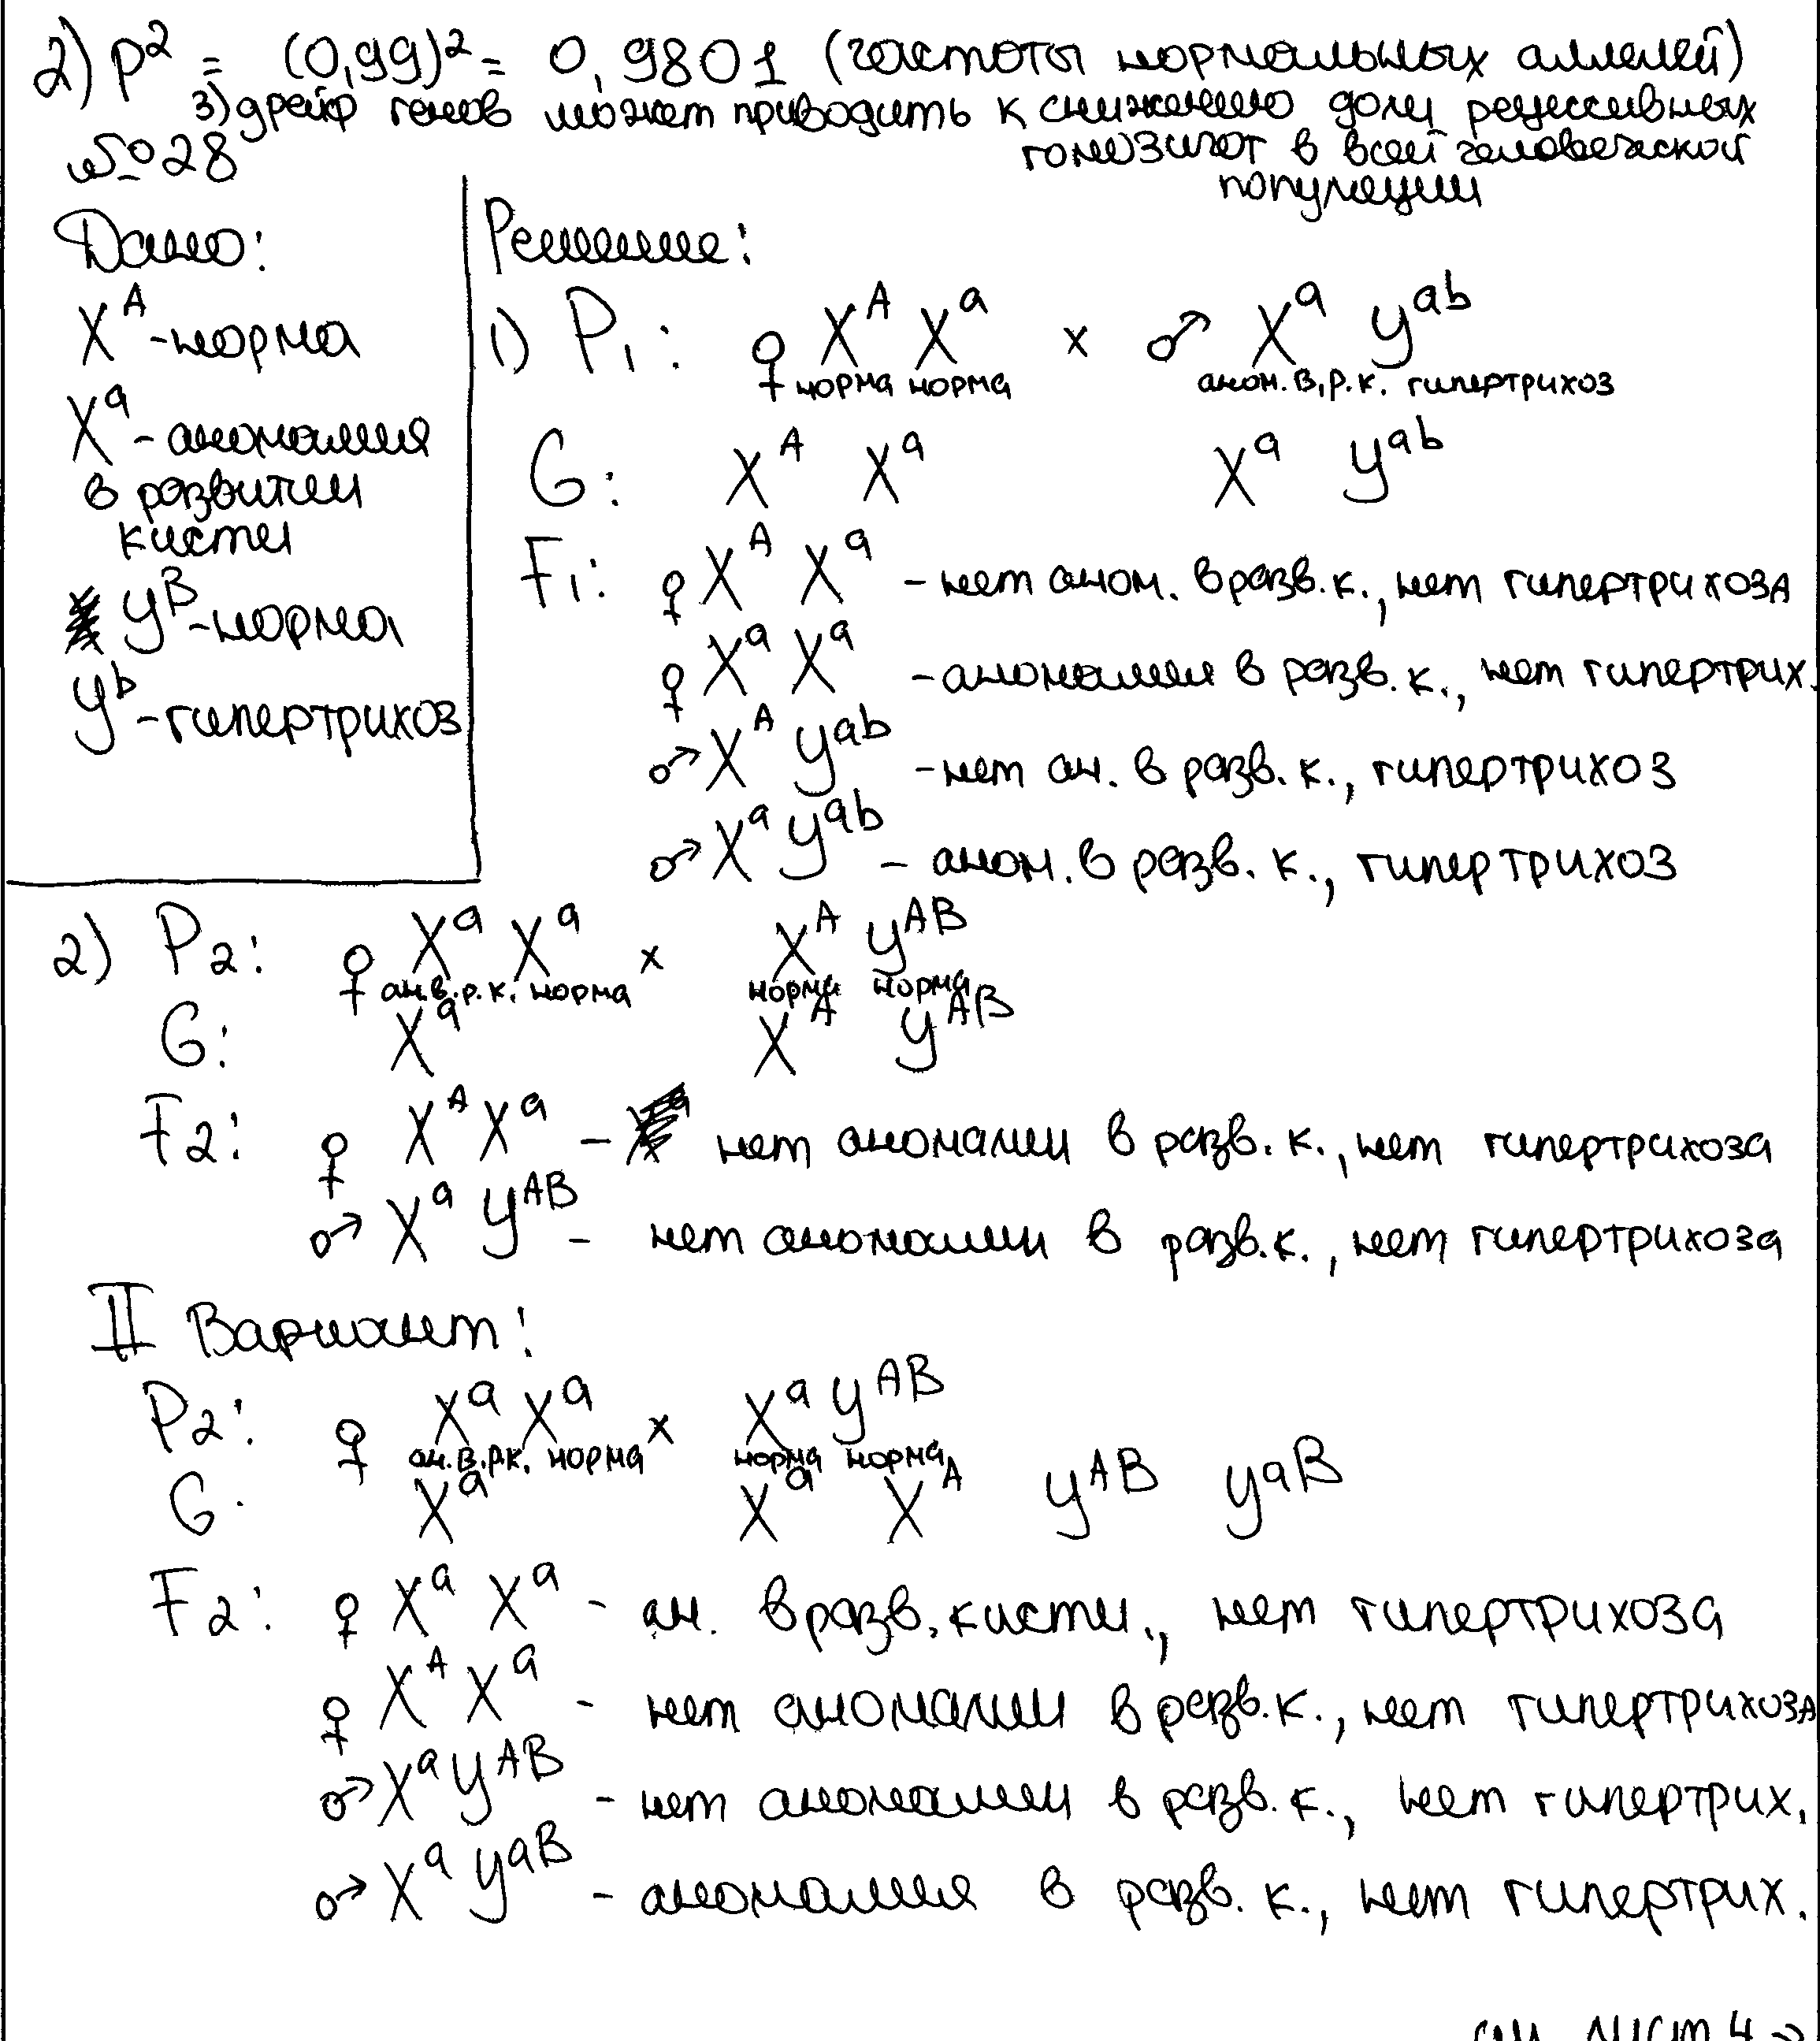 2) p² = (0,99)² = 0,9801 (частоты нормальных аллелей)
3) дрейф генов может приводить к снижению доли рецессивных
гомозигот в всей человеческой
популяции
№28
Дано:
Xᴬ - норма
Xᵃ - аномалия
в развитии
кисти
Yᴮ - норма
Yᵇ - гипертрихоз
Решение:
1) P₁: ♀ Xᴬ Xᵃ × ♂ Xᵃ Yᵃᵇ
норма норма анон. в.р.к. гипертрихоз
G: Xᴬ Xᵃ Xᵃ Yᵃᵇ
F₁: ♀ Xᴬ Xᵃ - нет аном. в разв. к., нет гипертрихоза
♀ Xᵃ Xᵃ - аномалии в разв. к., нет гипертрих.
♂ Xᴬ Yᵃᵇ - нет ан. в разв. к., гипертрихоз
♂ Xᵃ Yᵃᵇ - аном. в разв. к., гипертрихоз
2) P₂: ♀ Xᵃ Xᵃ × Xᴬ Yᴬᴮ
ан.в.р.к. норма норма норма
G: Xᵃ Xᴬ Yᴬᴮ
F₂: ♀ Xᴬ Xᵃ - нет аномалии в разв. к., нет гипертрихоза
♂ Xᵃ Yᴬᴮ - нет аномалии в разв.к., нет гипертрихоза
II Вариант:
P₂: ♀ Xᵃ Xᵃ × Xᵃ Yᴬᴮ
ан.в.р.к. норма норма норма
G: Xᵃ Xᵃ Xᴬ Yᴬᴮ Yᵃᴮ
F₂: ♀ Xᵃ Xᵃ - ан. в разв. кисти., нет гипертрихоза
♀ Xᴬ Xᵃ - нет аномалии в разв. к., нет гипертрихоза
♂ Xᵃ Yᴬᴮ - нет аномалии в разв. к., нет гипертрих.
♂ Xᵃ Yᵃᴮ - аномалия в разв. к., нет гипертрих.
см. лист 4 →